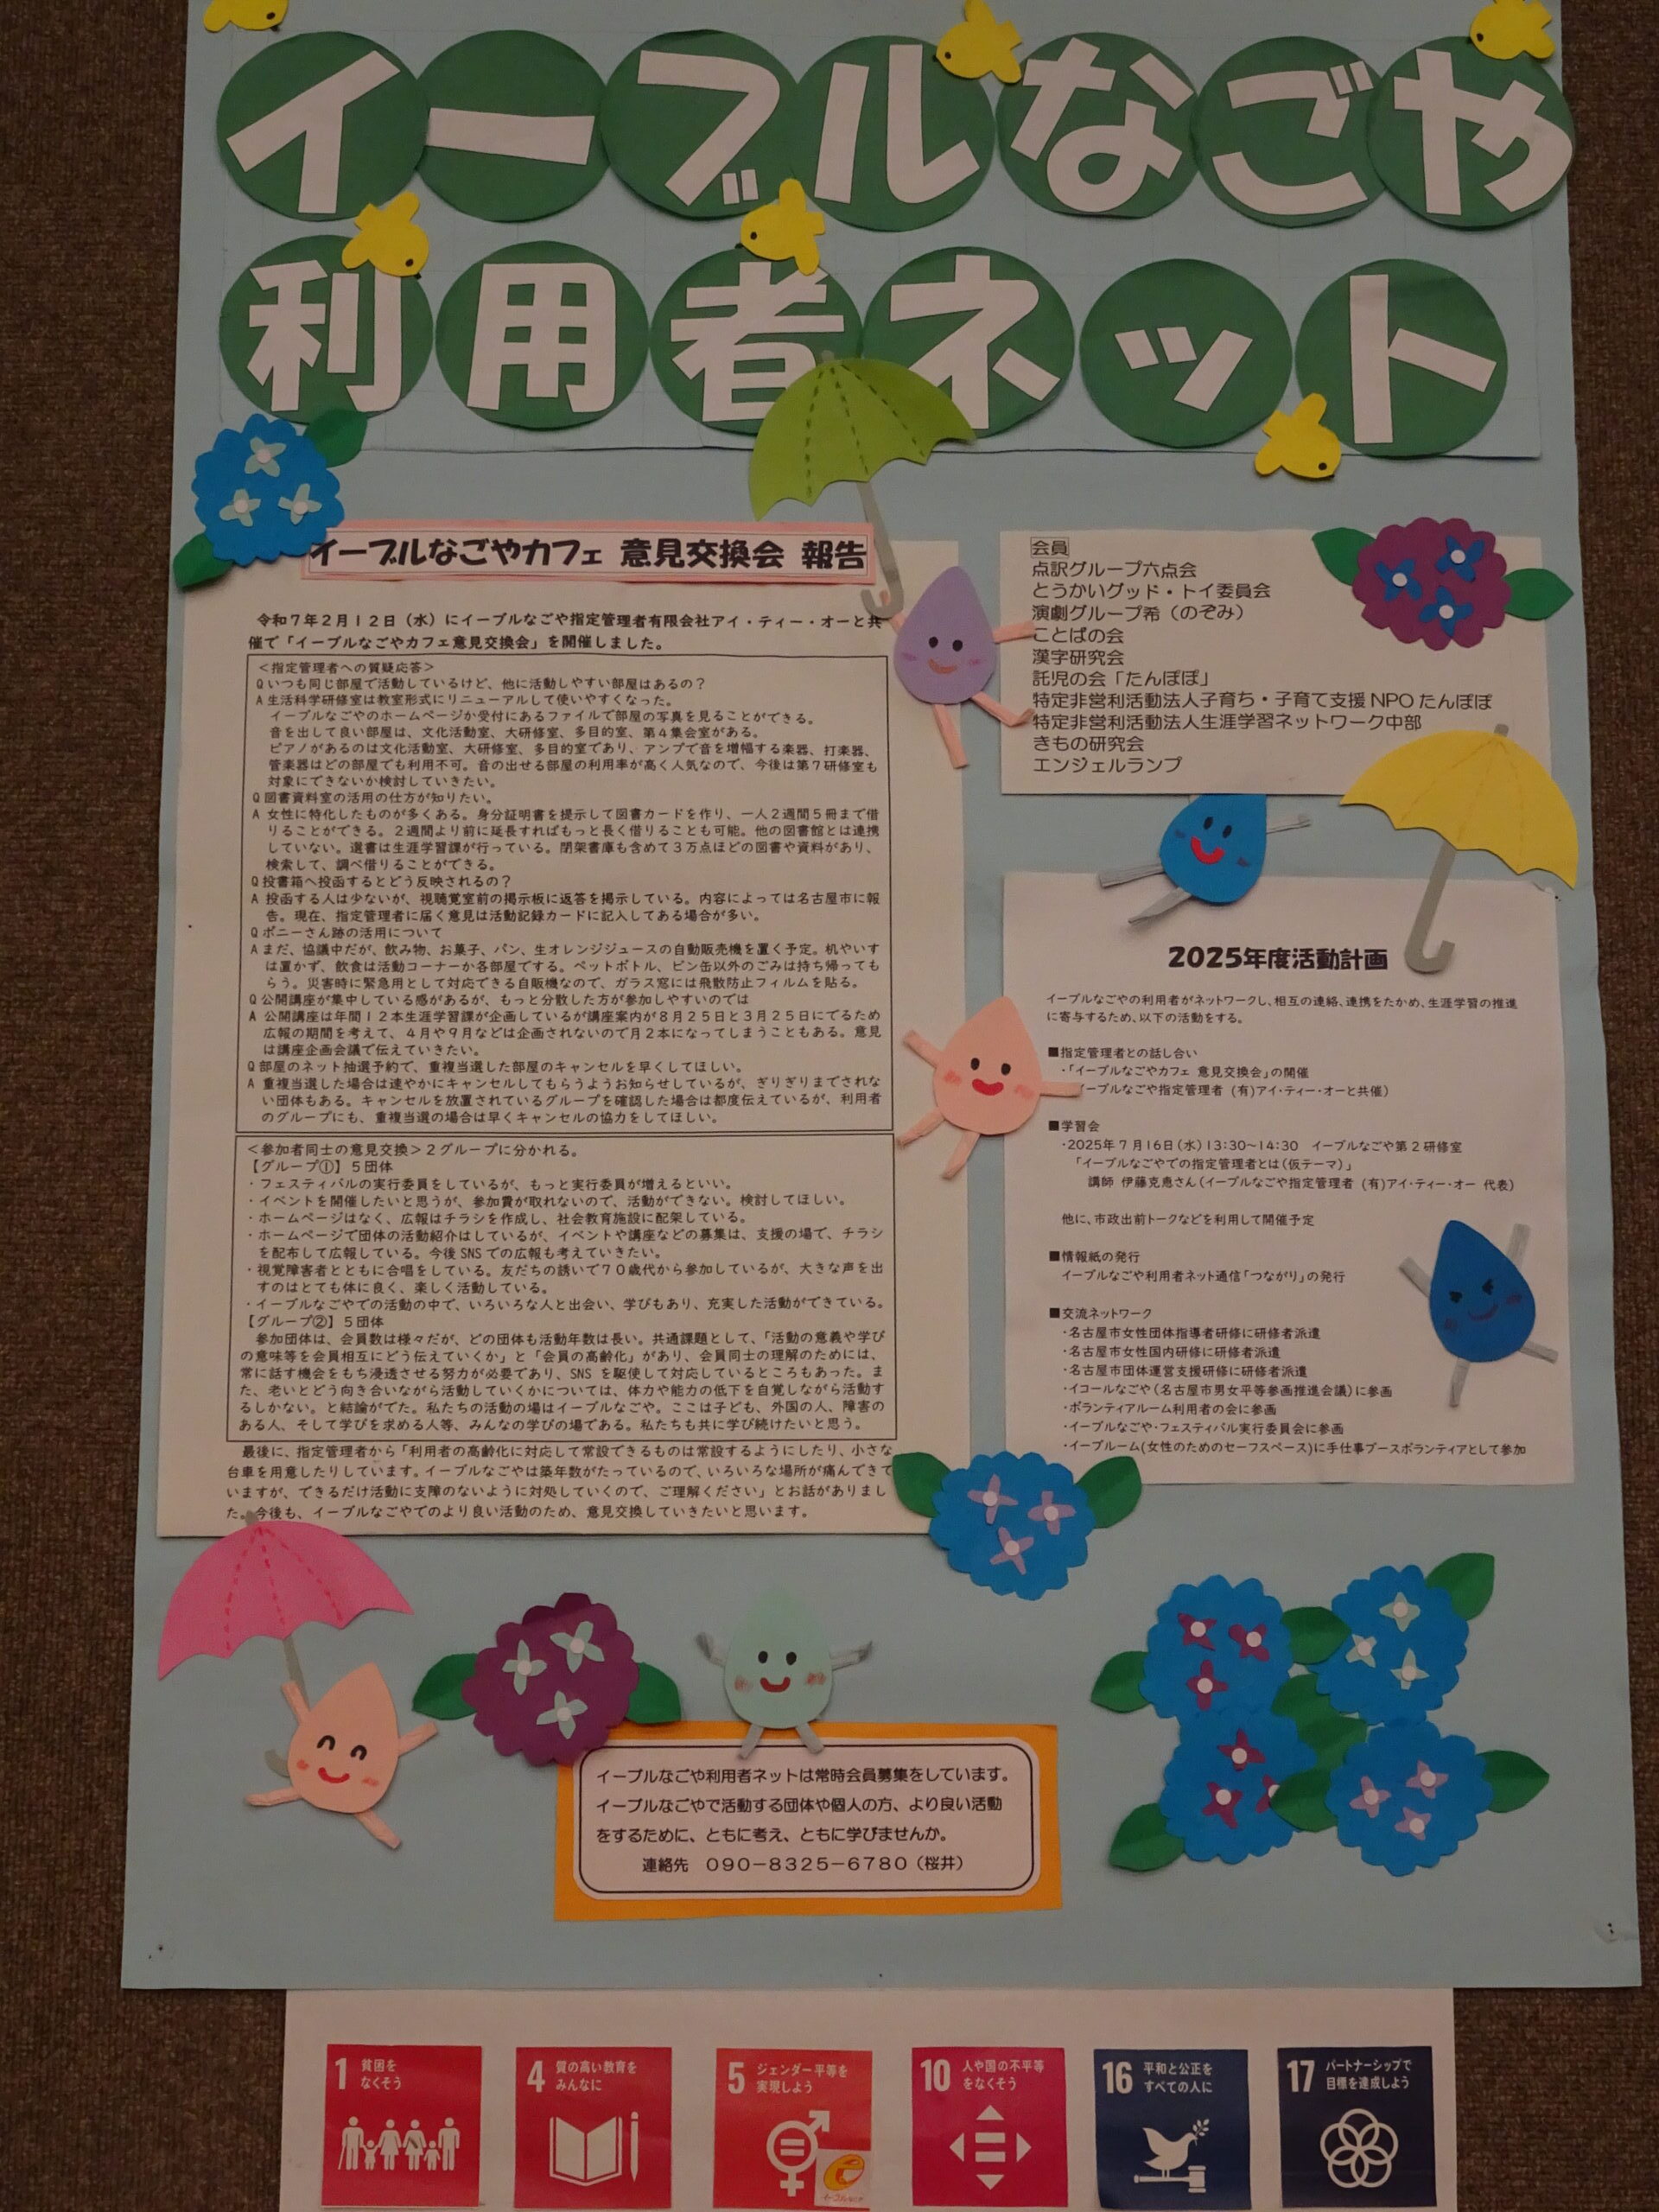 イーブルなごや
利用者ネット
イーブルなごやカフェ 意見交換会 報告
令和７年２月１２日（水）にイーブルなごや指定管理者有限会社アイ・ティー・オーと共
催で「イーブルなごやカフェ意見交換会」を開催しました。
＜指定管理者への質疑応答＞
Q いつも同じ部屋で活動しているけど、他に活動しやすい部屋はあるの？
A 生活科学研修室は教室形式にリニューアルして使いやすくなった。
イーブルなごやのホームページか受付にあるファイルで部屋の写真を見ることができる。
音を出して良い部屋は、文化活動室、大研修室、多目的室、第４集会室がある。
ピアノがあるのは文化活動室、大研修室、多目的室であり、アンプで音を増幅する楽器、打楽器、
管楽器はどの部屋でも利用不可。音の出せる部屋の利用率が高く人気なので、今後は第７研修室も
対象にできないか検討していきたい。
Q 図書資料室の活用の仕方が知りたい。
A 女性に特化したものが多くある。身分証明書を提示して図書カードを作り、一人２週間５冊まで借
りることができる。２週間より前に延長すればもっと長く借りることも可能。他の図書館とは連携
していない。選書は生涯学習課が行っている。閉架書庫も含めて３万点ほどの図書や資料があり、
検索して、調べ借りることができる。
Q 投書箱へ投函するとどう反映されるの？
A 投函する人は少ないが、視聴覚室前の掲示板に返答を掲示している。内容によっては名古屋市に報
告。現在、指定管理者に届く意見は活動記録カードに記入してある場合が多い。
Q ポニーさん跡の活用について
A まだ、協議中だが、飲み物、お菓子、パン、生オレンジジュースの自動販売機を置く予定。机やいす
は置かず、飲食は活動コーナーか各部屋でする。ペットボトル、ビン缶以外のごみは持ち帰っても
らう。災害時に緊急用として対応できる自販機なので、ガラス窓には飛散防止フィルムを貼る。
Q 公開講座が集中している感があるが、もっと分散した方が参加しやすいのでは
A 公開講座は年間１２本生涯学習課が企画しているが講座案内が８月２５日と３月２５日にでるため
広報の期間を考えて、４月や９月などは企画されないので月２本になってしまうこともある。意見
は講座企画会議で伝えていきたい。
Q 部屋のネット抽選予約で、重複当選した部屋のキャンセルを早くしてほしい。
A 重複当選した場合は速やかにキャンセルしてもらうようお知らせしているが、ぎりぎりまでされな
い団体もある。キャンセルを放置されているグループを確認した場合は都度伝えているが、利用者
のグループにも、重複当選の場合は早くキャンセルの協力をしてほしい。
＜参加者同士の意見交換＞２グループに分かれる。
【グループ①】５団体
・フェスティバルの実行委員をしているが、もっと実行委員が増えるといい。
・イベントを開催したいと思うが、参加費が取れないので、活動ができない。検討してほしい。
・ホームページはなく、広報はチラシを作成し、社会教育施設に配架している。
・ホームページで団体の活動紹介はしているが、イベントや講座などの募集は、支援の場で、チラシ
を配布して広報している。今後 SNS での広報も考えていきたい。
・視覚障害者とともに合唱をしている。友だちの誘いで７０歳代から参加しているが、大きな声を出
すのはとても体に良く、楽しく活動している。
・イーブルなごやでの活動の中で、いろいろな人と出会い、学びもあり、充実した活動ができている。
【グループ②】５団体
参加団体は、会員数は様々だが、どの団体も活動年数は長い。共通課題として、「活動の意義や学び
の意味等を会員相互にどう伝えていくか」と「会員の高齢化」があり、会員同士の理解のためには、
常に話す機会をもち浸透させる努力が必要であり、SNS を駆使して対応しているところもあった。ま
た、老いとどう向き合いながら活動していくかについては、体力や能力の低下を自覚しながら活動す
るしかない。と結論がでた。私たちの活動の場はイーブルなごや。ここは子ども、外国の人、障害の
ある人、そして学びを求める人等、みんなの学びの場である。私たちも共に学び続けたいと思う。
最後に、指定管理者から「利用者の高齢化に対応して常設できるものは常設するようにしたり、小さな
台車を用意したりしています。イーブルなごやは築年数がたっているので、いろいろな場所が痛んできて
いますが、できるだけ活動に支障のないように対処していくので、ご理解ください」とお話がありまし
た。今後も、イーブルなごやでのより良い活動のため、意見交換していきたいと思います。
会員
点訳グループ六点会
とうかいグッド・トイ委員会
演劇グループ希（のぞみ）
ことばの会
漢字研究会
託児の会「たんぽぽ」
特定非営利活動法人子育ち・子育て支援 NPO たんぽぽ
特定非営利活動法人生涯学習ネットワーク中部
きもの研究会
エンジェルランプ
2025年度活動計画
イーブルなごやの利用者がネットワークし、相互の連絡、連携をたかめ、生涯学習の推進
に寄与するため、以下の活動をする。
■指定管理者との話し合い
・「イーブルなごやカフェ 意見交換会」の開催
イーブルなごや指定管理者 (有)アイ・ティー・オーと共催）
■学習会
・2025年７月16日(水)13:30～14:30 イーブルなごや第２研修室
「イーブルなごやでの指定管理者とは（仮テーマ）」
講師 伊藤克恵さん（イーブルなごや指定管理者 (有)アイ・ティー・オー 代表）
他に、市政出前トークなどを利用して開催予定
■情報紙の発行
イーブルなごや利用者ネット通信「つながり」の発行
■交流ネットワーク
・名古屋市女性団体指導者研修に研修者派遣
・名古屋市女性国内研修に研修者派遣
・名古屋市団体運営支援研修に研修者派遣
・イコールなごや（名古屋市男女平等参画推進会議）に参画
・ボランティアルーム利用者の会に参画
・イーブルなごや・フェスティバル実行委員会に参画
・イーブルーム(女性のためのセーフスペース)に手仕事ブースボランティアとして参加
イーブルなごや利用者ネットは常時会員募集をしています。
イーブルなごやで活動する団体や個人の方、より良い活動
をするために、ともに考え、ともに学びませんか。
連絡先 ０９０－８３２５－６７８０（桜井）
1 貧困を
なくそう
4 質の高い教育を
みんなに
5 ジェンダー平等を
実現しよう
10 人や国の不平等
をなくそう
16 平和と公正を
すべての人に
17 パートナーシップで
目標を達成しよう